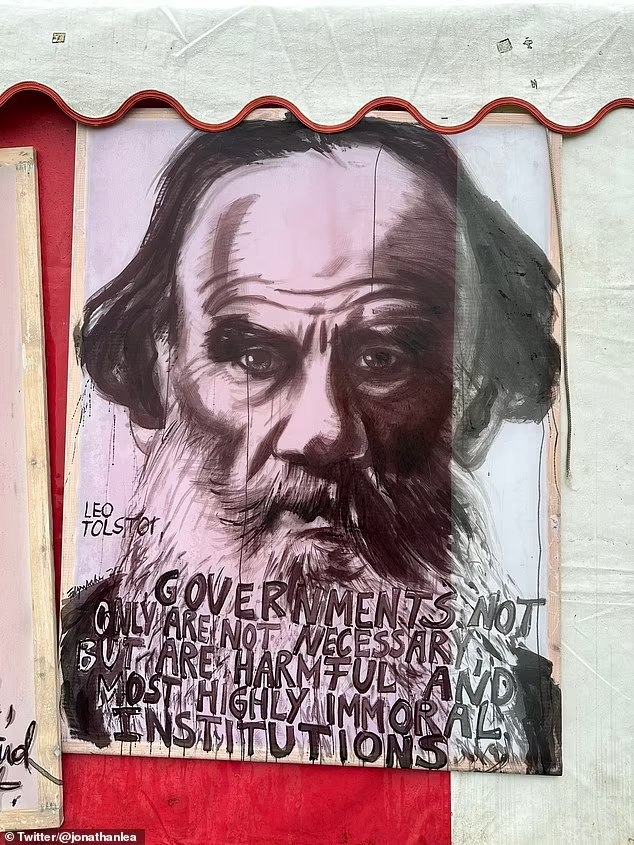 LEO
TOLSTOY
GOVERNMENTS NOT
ONLY ARE NOT NECESSARY,
BUT ARE HARMFUL AND
MOST HIGHLY IMMORAL
INSTITUTIONS
© Twitter/@jonathanlea